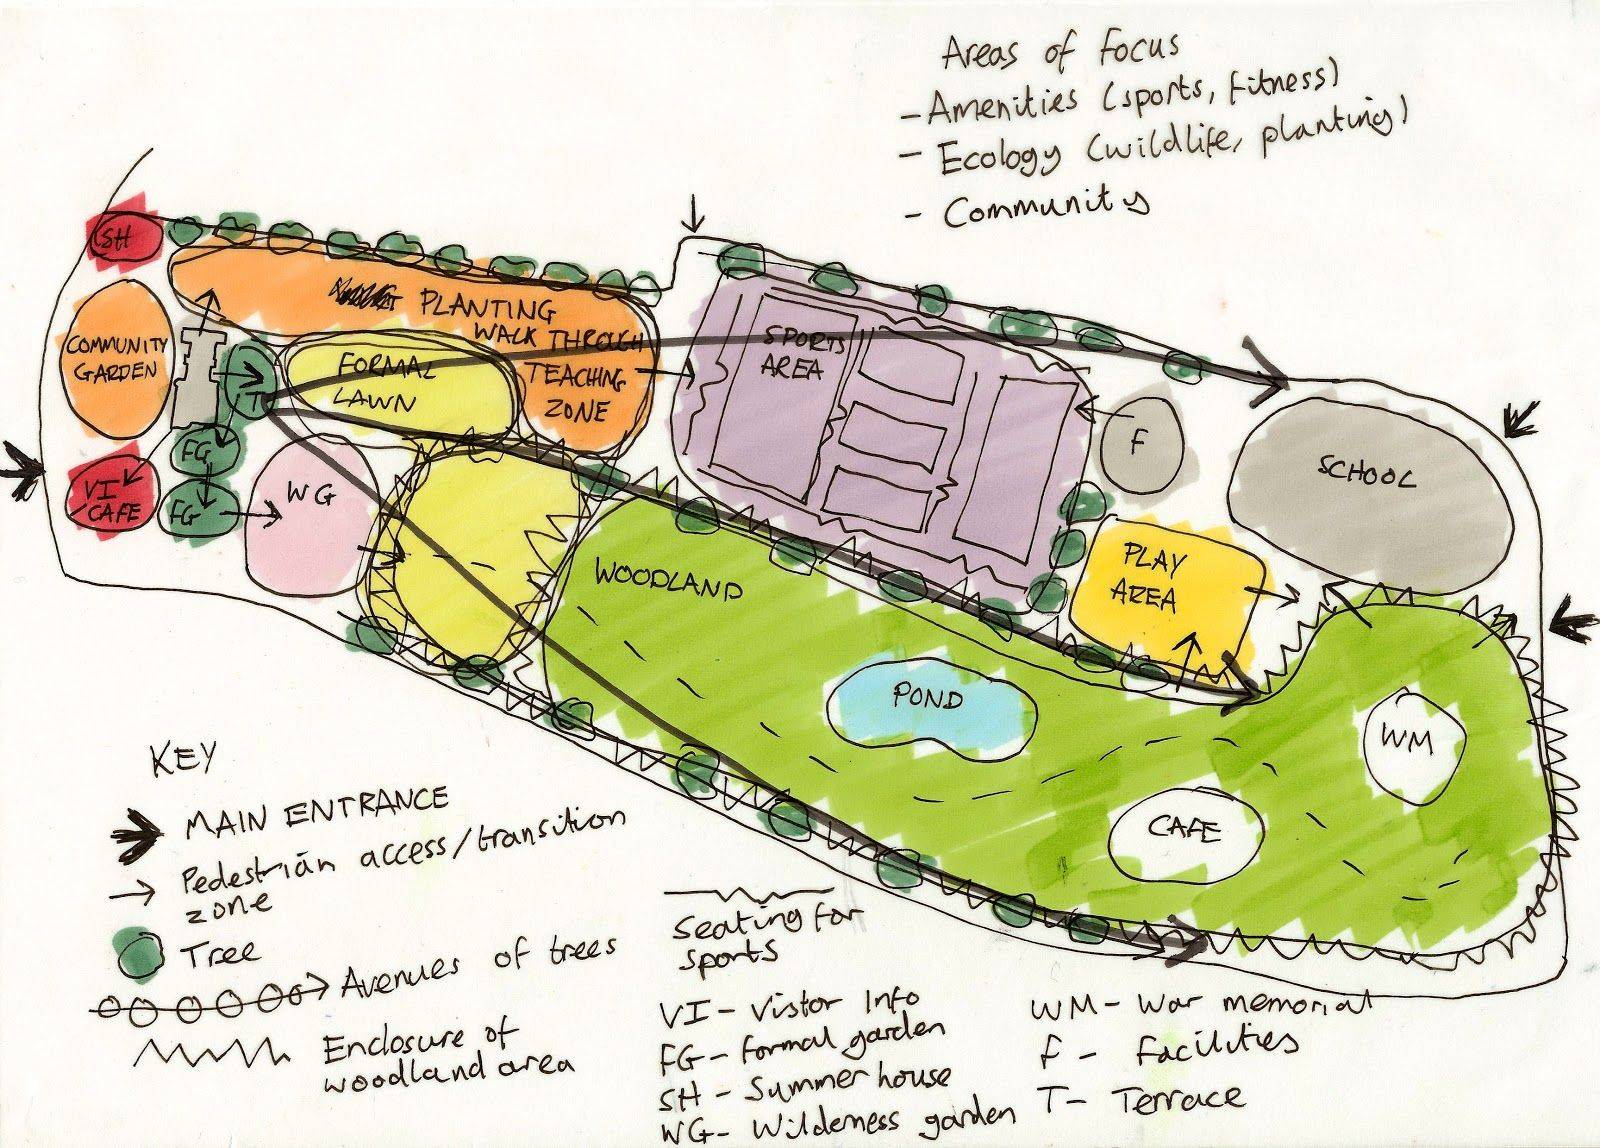 Areas of Focus
- Amenities (sports, fitness)
- Ecology (wildlife, planting)
- Community
SH
PLANTING
WALK THROUGH
TEACHING
ZONE
COMMUNITY
GARDEN
FORMAL
LAWN
T
FG
FG
VI
/CAFE
WG
SPORTS
AREA
F
SCHOOL
PLAY
AREA
WOODLAND
POND
WM
CAFE
KEY
MAIN ENTRANCE
Pedestrian access/transition
zone
Tree
Avenues of trees
Enclosure of
woodland area
Seating for
sports
VI - Vistor Info
FG - Formal garden
SH - Summer house
WG - Wilderness garden
WM - War memorial
F - Facilities
T - Terrace